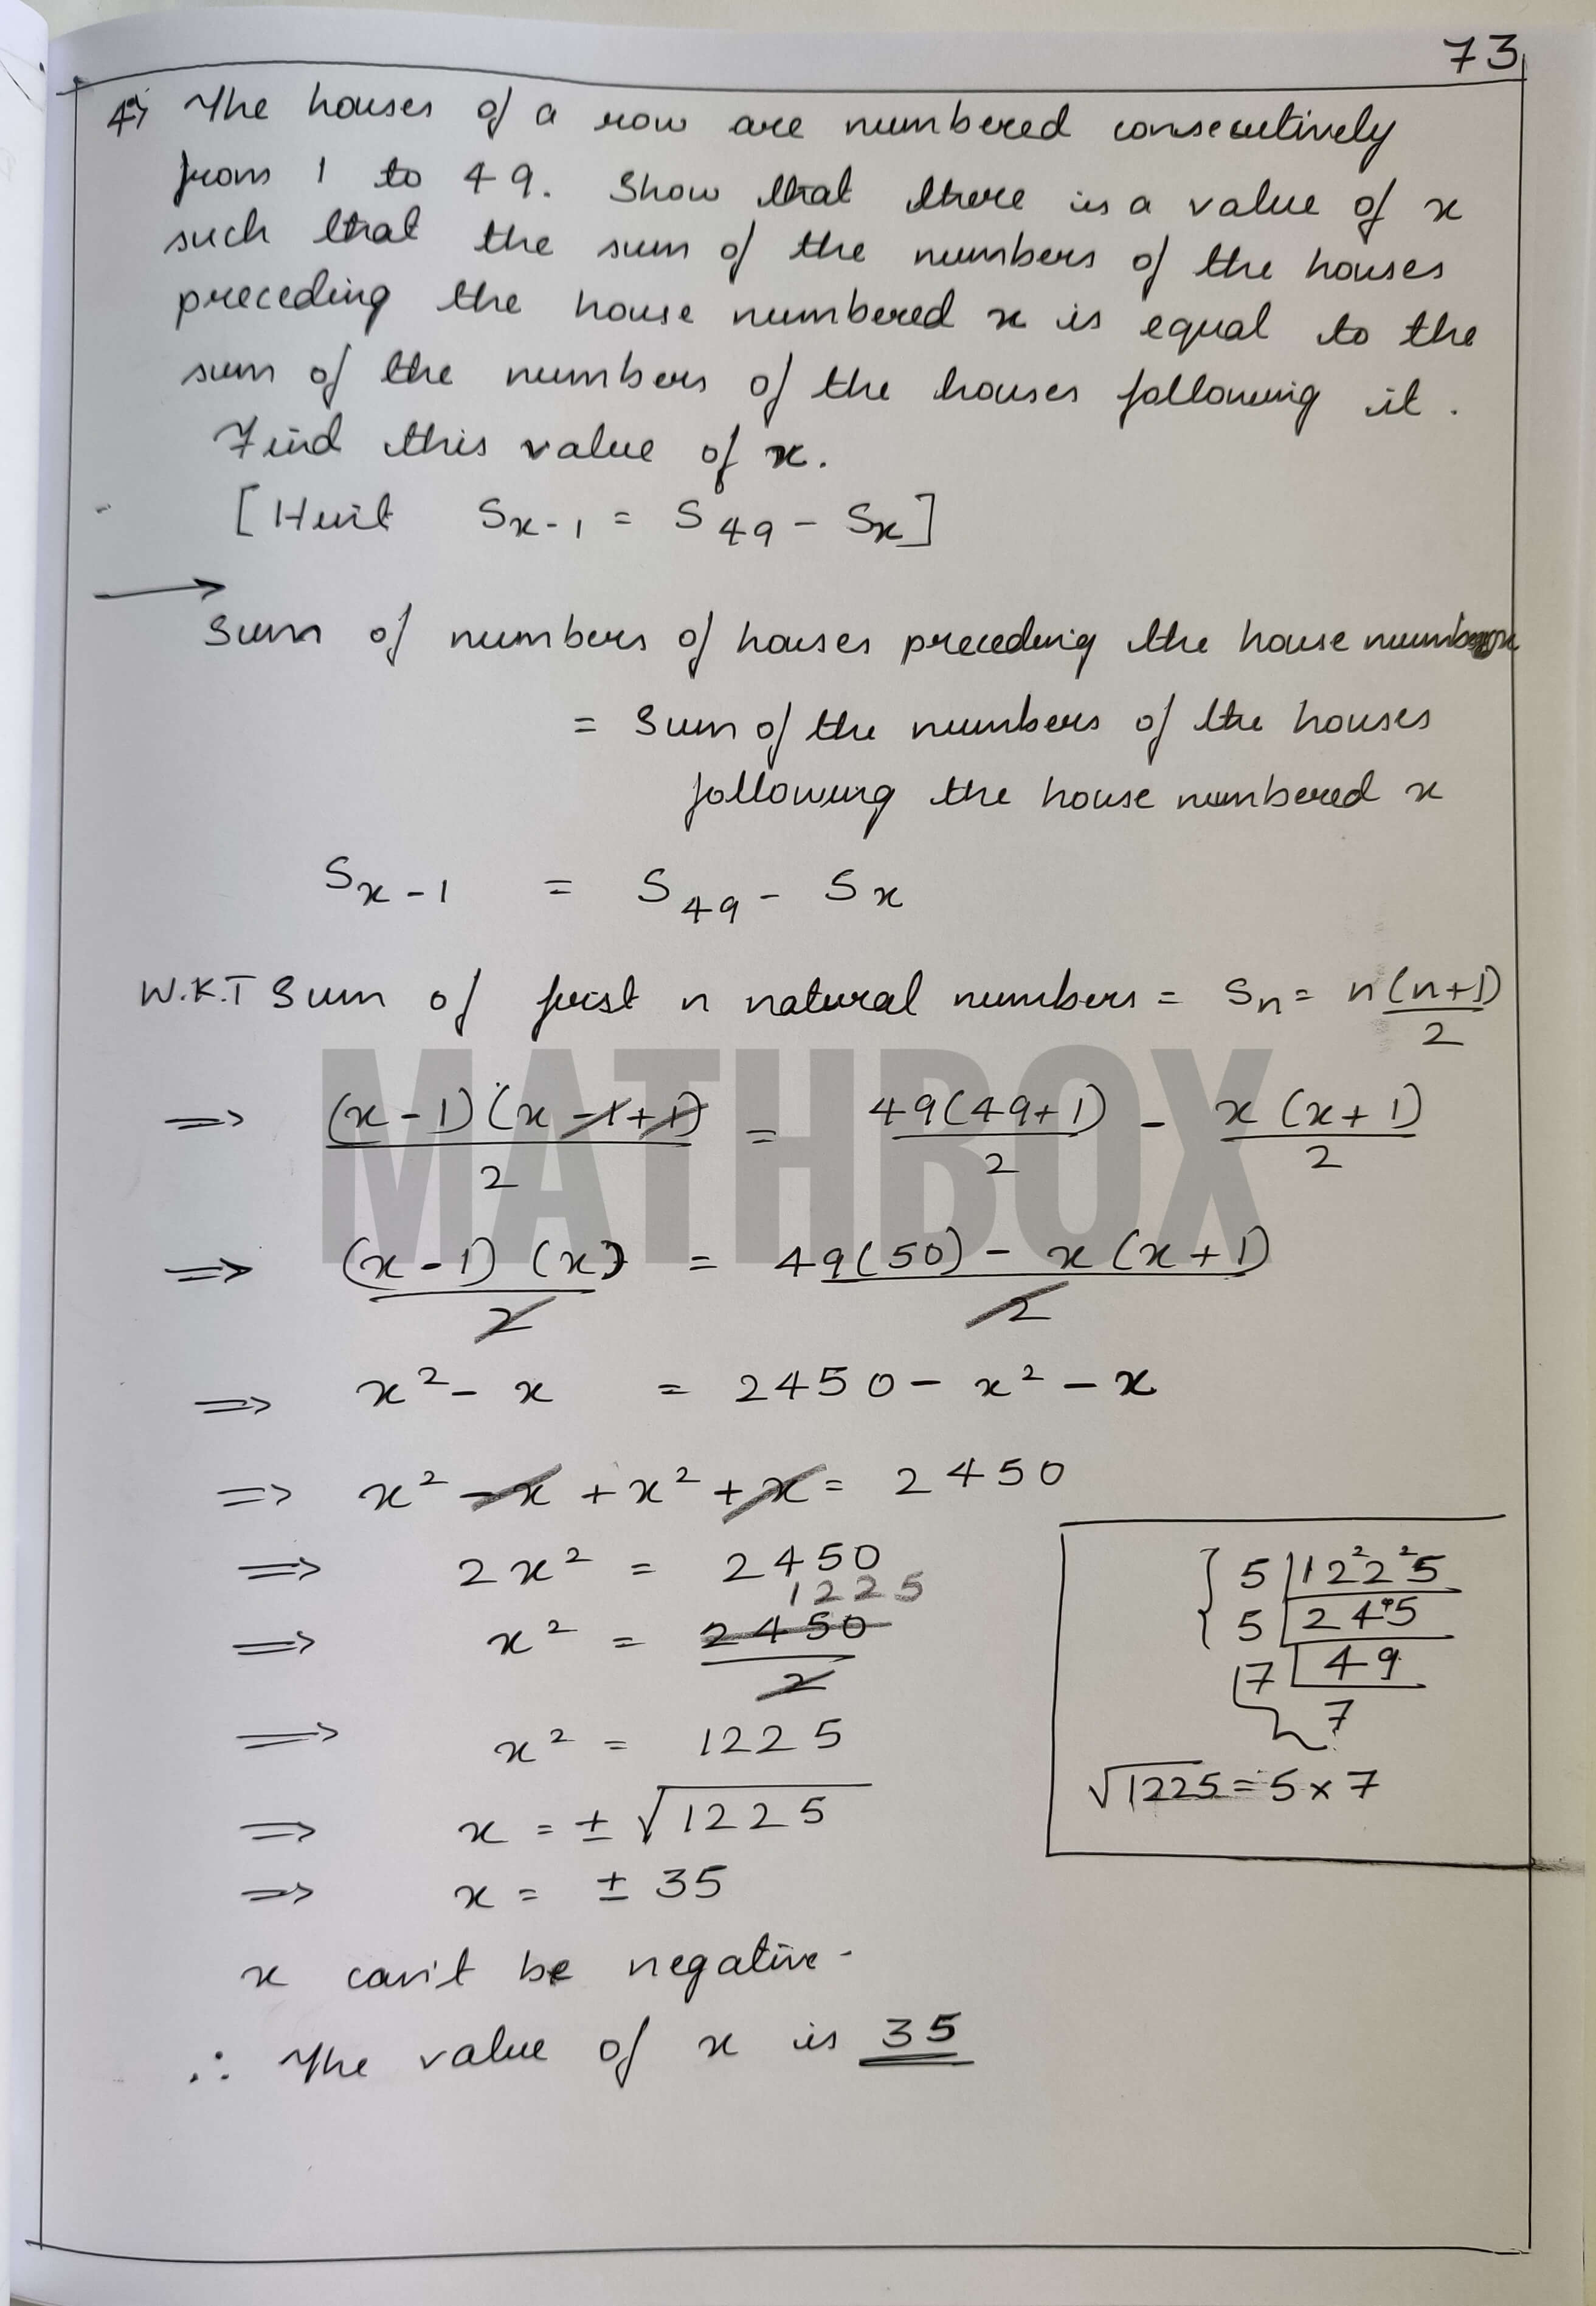 73
4) The houses of a row are numbered consecutively
from 1 to 49. Show that there is a value of x
such that the sum of the numbers of the houses
preceding the house numbered x is equal to the
sum of the numbers of the houses following it.
Find this value of x.
[Hint Sx-1 = S49 - Sx]
Sum of numbers of houses preceding the house
= Sum of the numbers of the houses
following the house numbered x
Sx-1 = S49 - Sx
W.K.T Sum of first n natural numbers = Sn = n(n+1)/2
MATHBOX
=> (x-1)(x-1+1)/2 = 49(49+1)/2 - x(x+1)/2
=> (x-1)(x)/2 = 49(50) - x(x+1)/2
=> x² - x = 2450 - x² - x
=> x² - x + x² + x = 2450
=> 2x² = 2450
1225
=> x² = 2450/2
=> x² = 1225
=> x = ± √1225
=> x = ± 35
x can't be negative.
∴ The value of x is 35
5 | 12²2²5
5 | 245
7 | 49
7
√1225 = 5 x 7